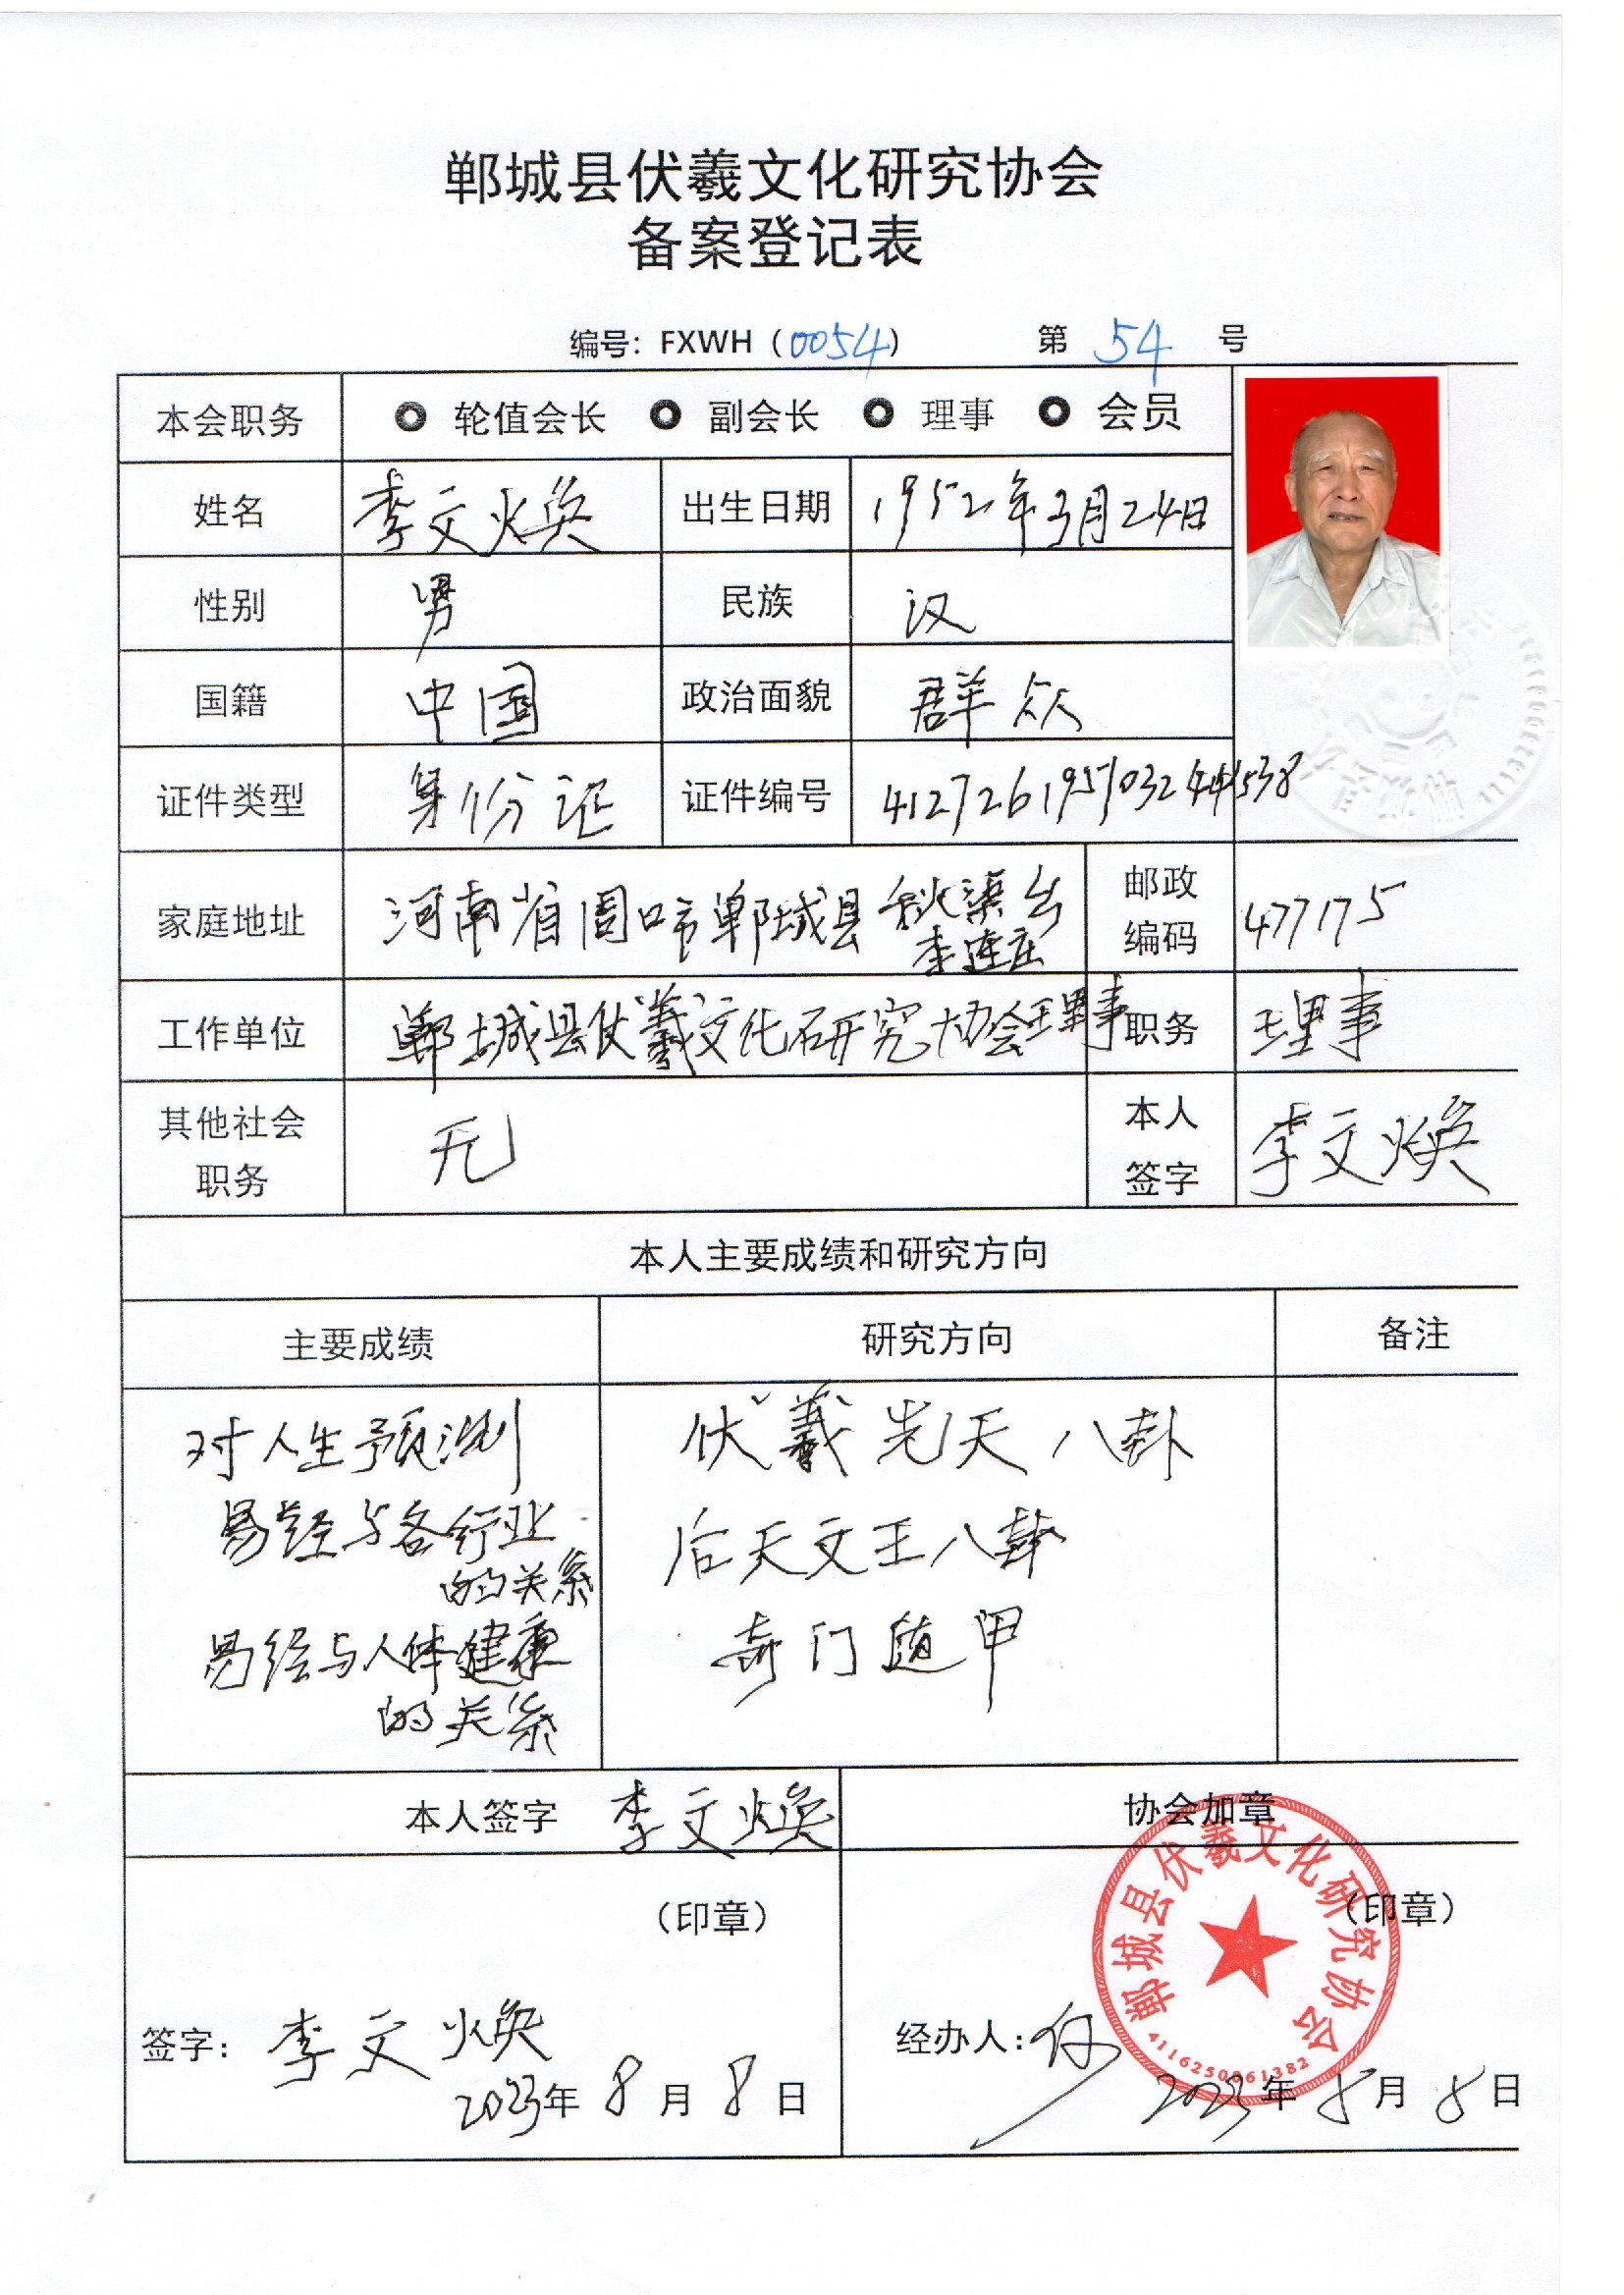 郸城县伏羲文化研究协会
备案登记表
编号：FXWH（0054） 第 54 号
本会职务 轮值会长 副会长 理事 会员
姓名 李文焕 出生日期 1952年3月24日
性别 男 民族 汉
国籍 中国 政治面貌 群众
证件类型 身份证 证件编号
家庭地址 河南省周口市郸城县秋渠乡 邮政
李连庄 编码 477175
工作单位 郸城县伏羲文化研究协会理事 职务 理事
其他社会 无 本人 李文焕
职务 签字
本人主要成绩和研究方向
主要成绩 研究方向 备注
对人生预测 伏羲先天八卦
易经与各行业 后天文王八卦
的关系
易经与人体健康 奇门遁甲
的关系
本人签字 李文焕 协会加章
（印章） （印章）
郸城县伏羲文化研究协会
4116250061382
签字： 李文焕 经办人：
2023年 8月 8日 2023年 8月 8日